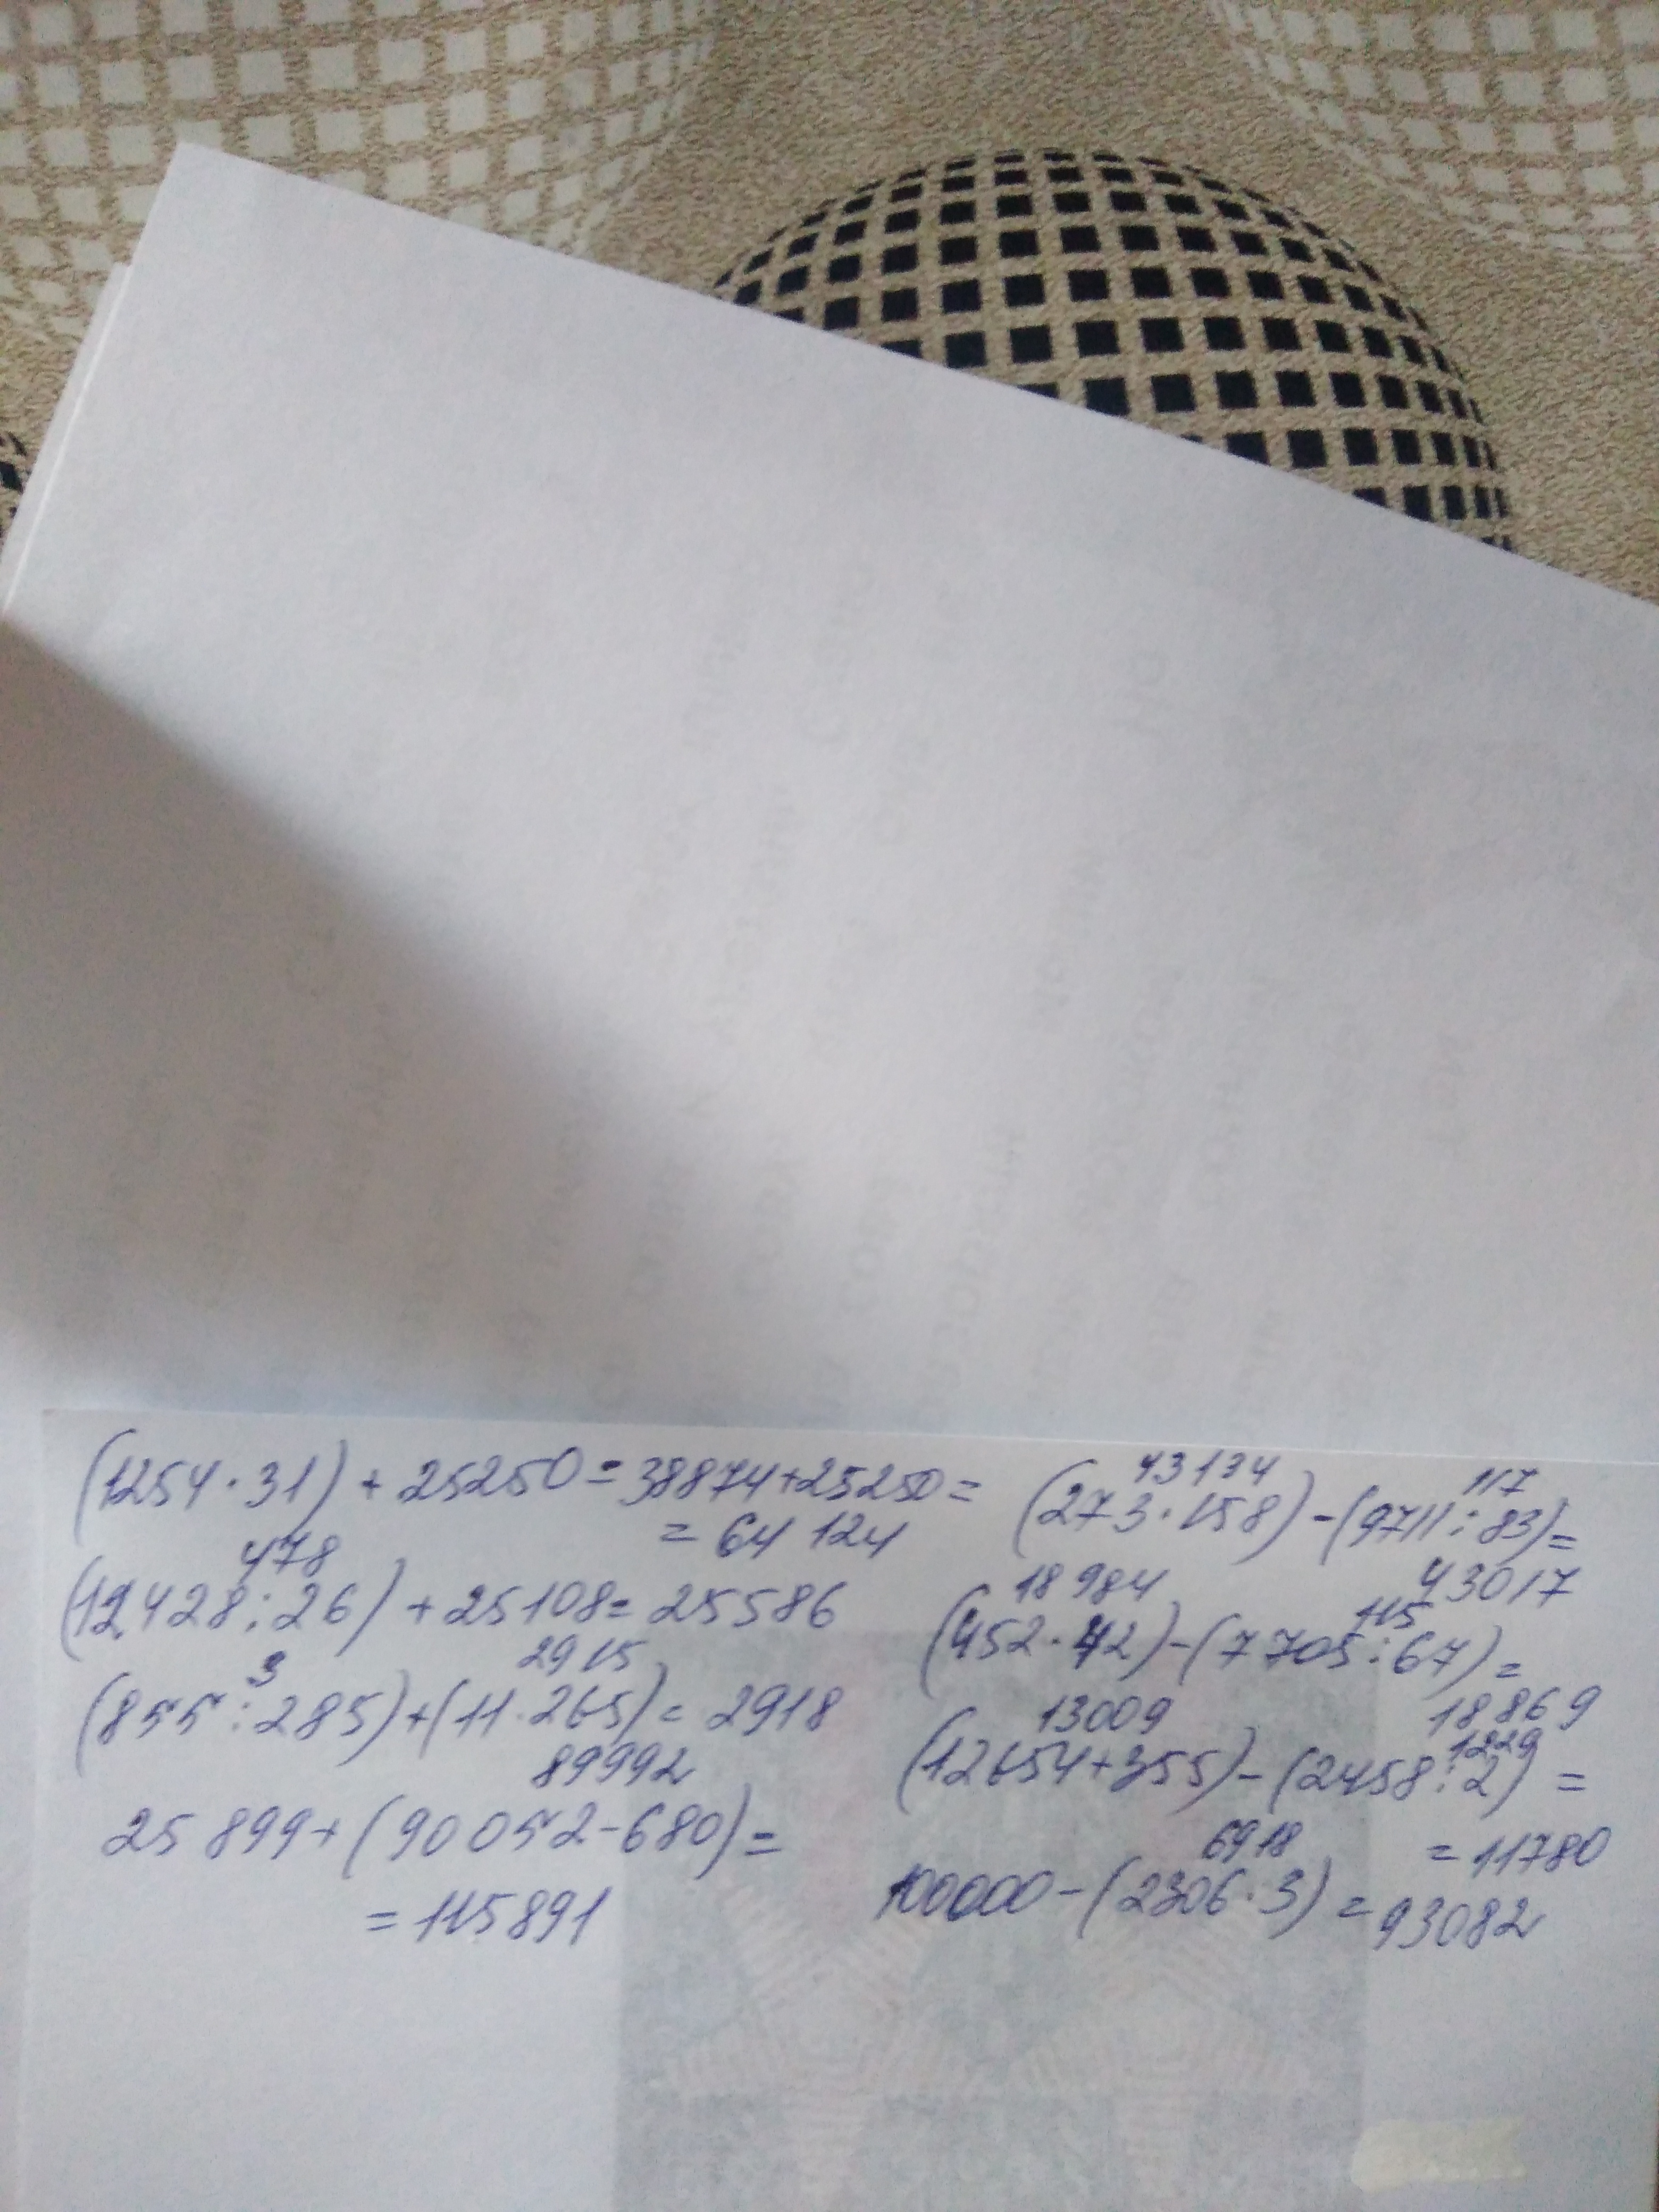 (1254·31)+25250=38874+25250=
=64 124
478
(12428:26)+25108=25586
3 2915
(855:285)+(11·265)=2918
89992
25 899+(90052-680)=
=115891
43134 117
(273·158)-(9711:83)=
43017
18984 115
(452·42)-(7705:67)=
18869
13009 1229
(12654+355)-(2458:2)=
=11780
6918
100000-(2306·3)=93082